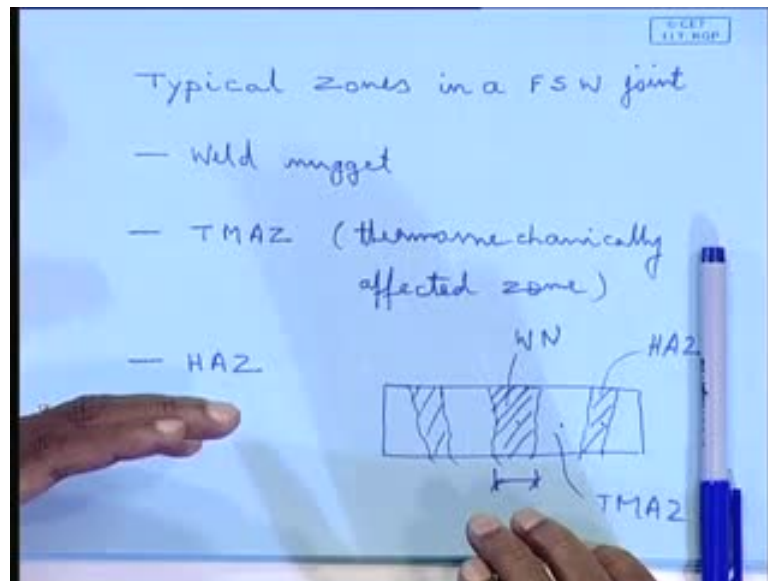 © CET
I.I.T. KGP
Typical zones in a FSW joint
— Weld nugget
— TMAZ (thermomechanically
affected zone)
— HAZ
WN
HAZ
TMAZ